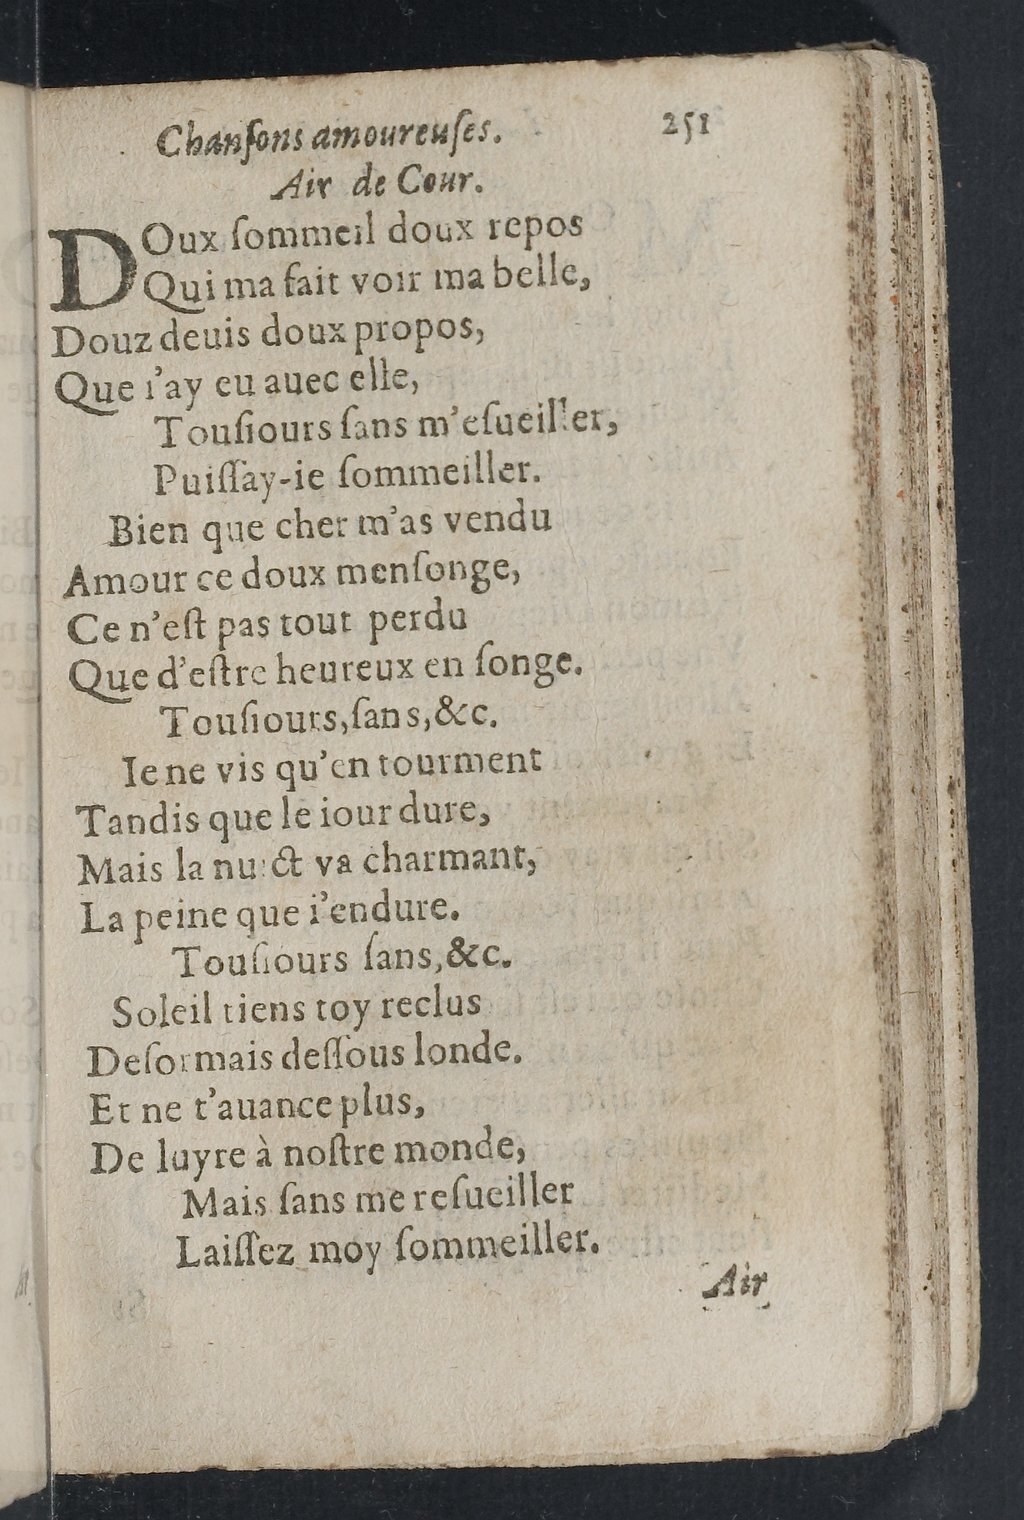 Chanſons amoureuſes. 251
Air de Cour.
DOux ſommeil doux repos
Qui ma fait voir ma belle,
Douz deuis doux propos,
Que i'ay eu auec elle,
Touſiours ſans m'eſueiller,
Puiſſay-ie ſommeiller.
Bien que cher m'as vendu
Amour ce doux menſonge,
Ce n'eſt pas tout perdu
Que d'eſtre heureux en ſonge.
Touſiours, ſans, &c.
Ie ne vis qu'en tourment
Tandis que le iour dure,
Mais la nuict va charmant,
La peine que i'endure.
Touſiours ſans, &c.
Soleil tiens toy reclus
Deſormais deſſous londe.
Et ne t'auance plus,
De luyre à noſtre monde,
Mais ſans me reſueiller
Laiſſez moy ſommeiller.
Air